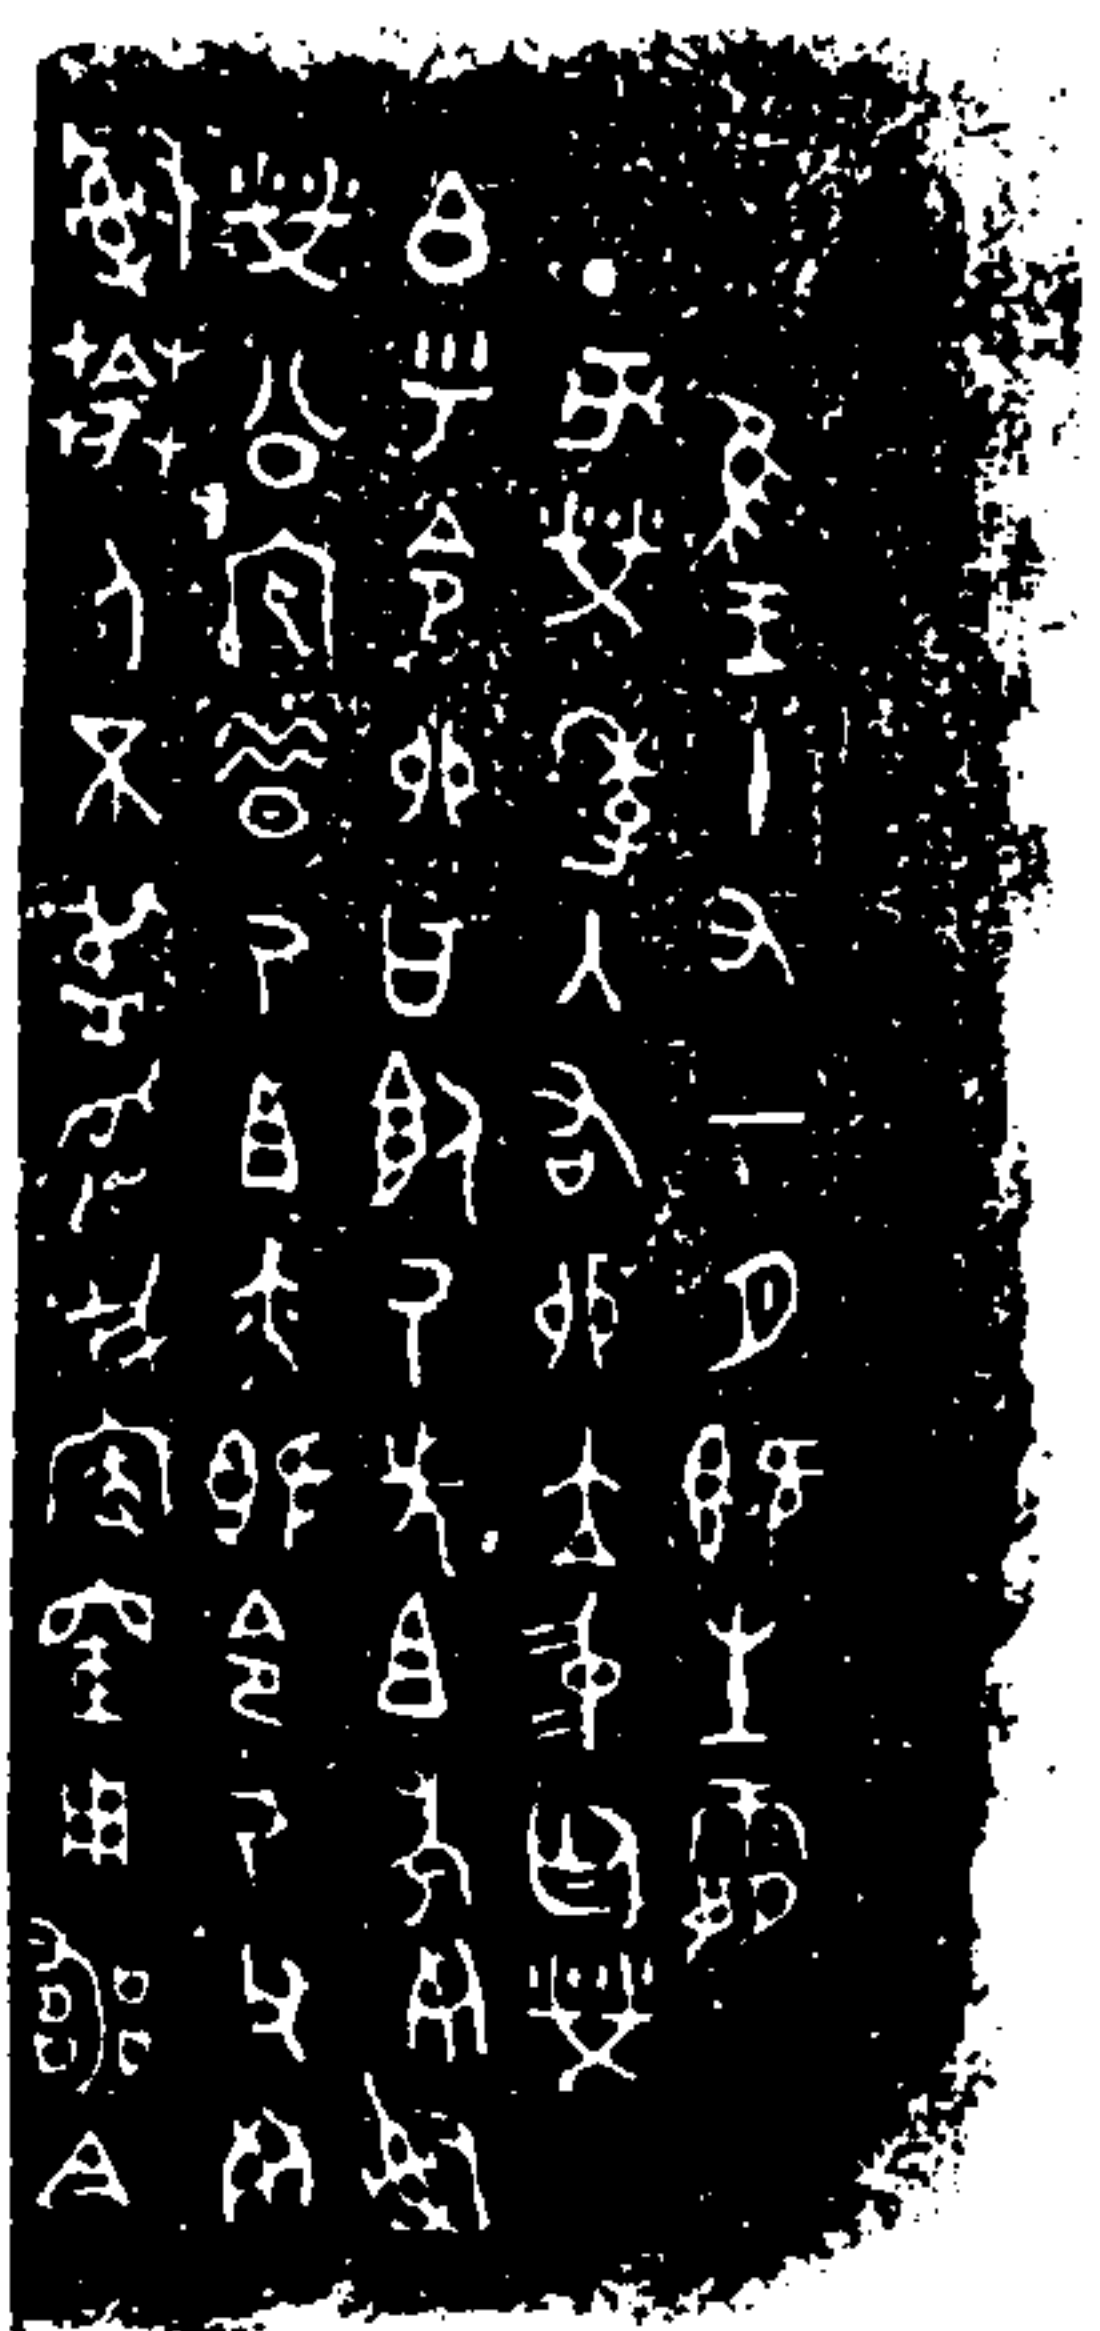 隹王十又一月既生霸
丁亥榮季入右卯立中廷榮
白乎令卯曰𩵦乃先且考死𤔲
榮公室昔乃且亦既令乃父死
𤔲葊人不盄取我家窒用喪今